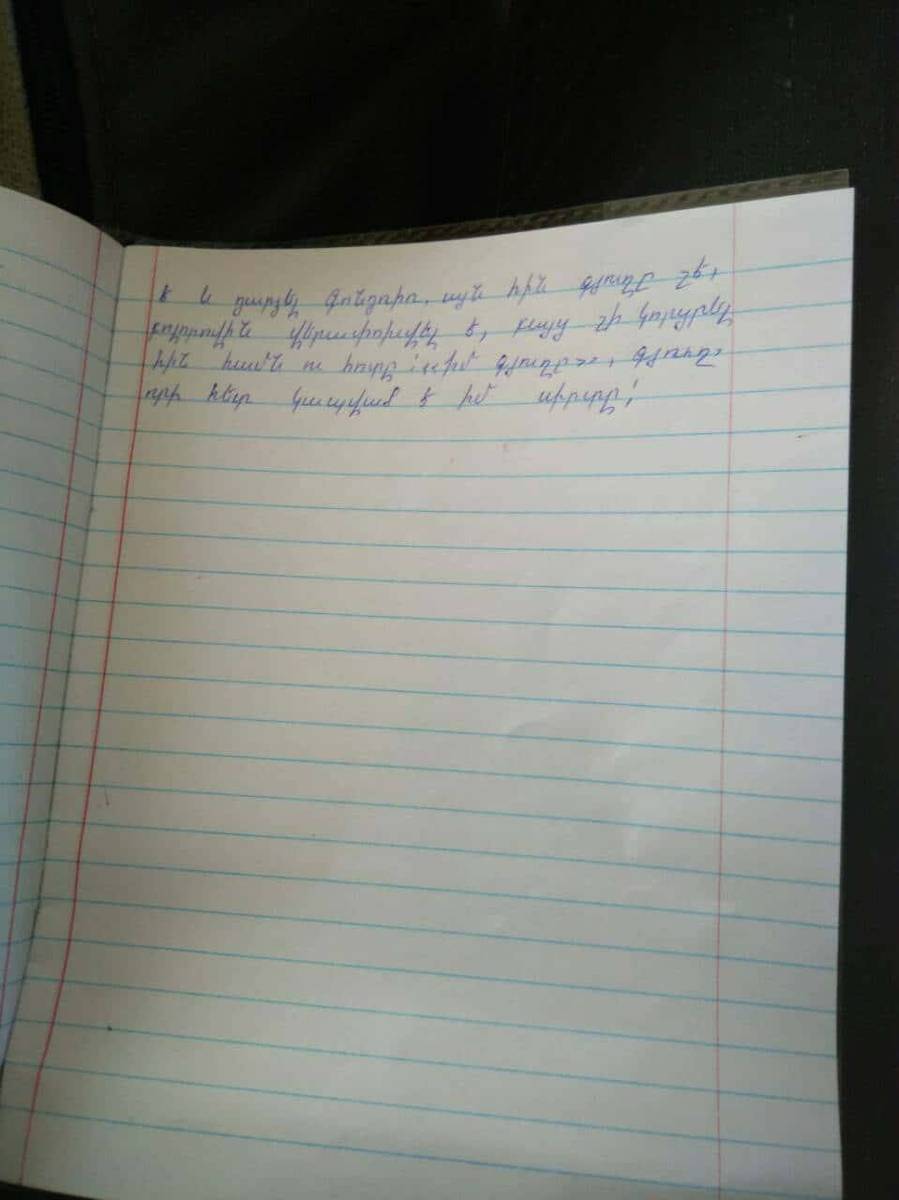 է և դարձել գունդուրս. այն հին գյուղը չէ,
բոլորովին վերափոխվել է, բայց չի կորցրել
հին համն ու հոտը: <<Իմ գյուղը>>, գյուղ
որի հետ կապված է իմ սիրտը: